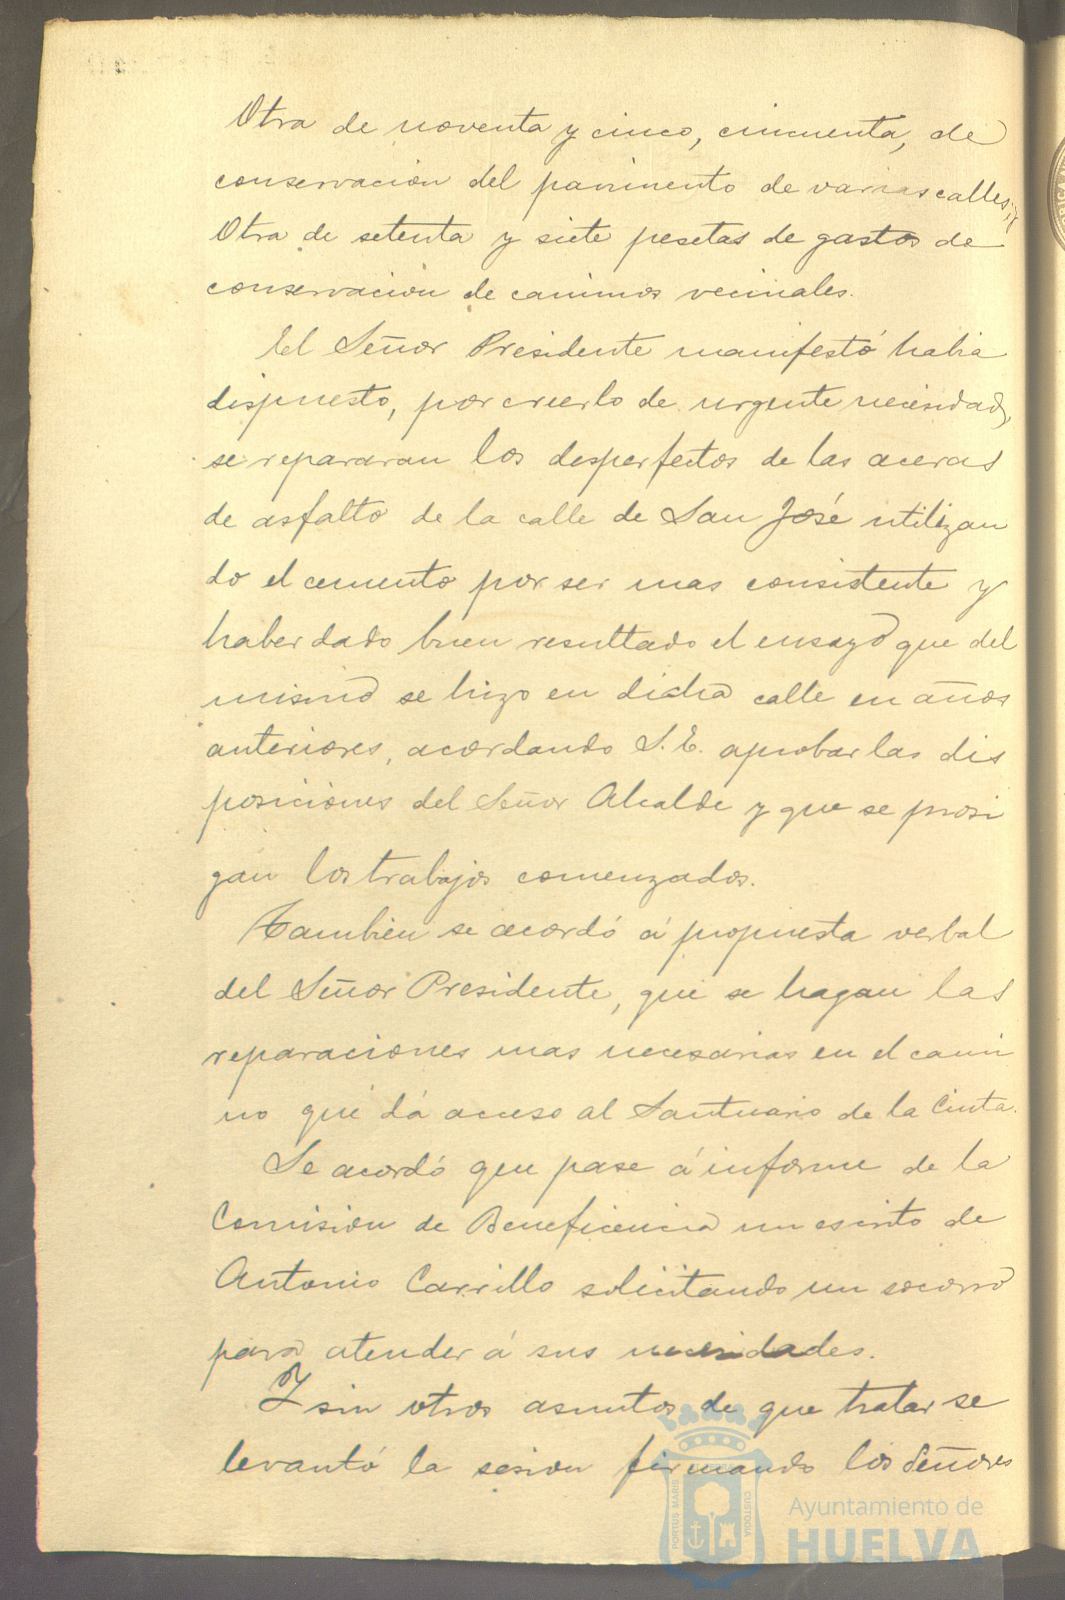 Otra de noventa y cinco, cincuenta, de
conservación del pavimento de varias calles, y
Otra de setenta y siete pesetas de gastos de
conservación de caminos vecinales.
El Señor Presidente manifestó habia
dispuesto, por creerlo de urgente necesidad,
se repararan los desperfectos de las aceras
de asfalto de la calle de San José utilizan
do el cemento por ser mas consistente y
haber dado buen resultado el ensayo que del
mismo se hizo en dicha calle en años
anteriores, acordando S. E. aprobar las dis
posiciones del Señor Alcalde y que se prosi
gan los trabajos comenzados.
Tambien se acordó á propuesta verbal
del Señor Presidente, que se hagan las
reparaciones mas necesarias en el cami
no que dá acceso al Santuario de la Cinta.
Se acordó que pase á informe de la
Comision de Beneficencia un escrito de
Antonio Carrillo solicitando un socorro
para atender á sus necesidades.
Y sin otros asuntos de que tratar se
levantó la sesion firmando los Señores
PORTUS MARIS CUSTODIA
Ayuntamiento de
HUELVA